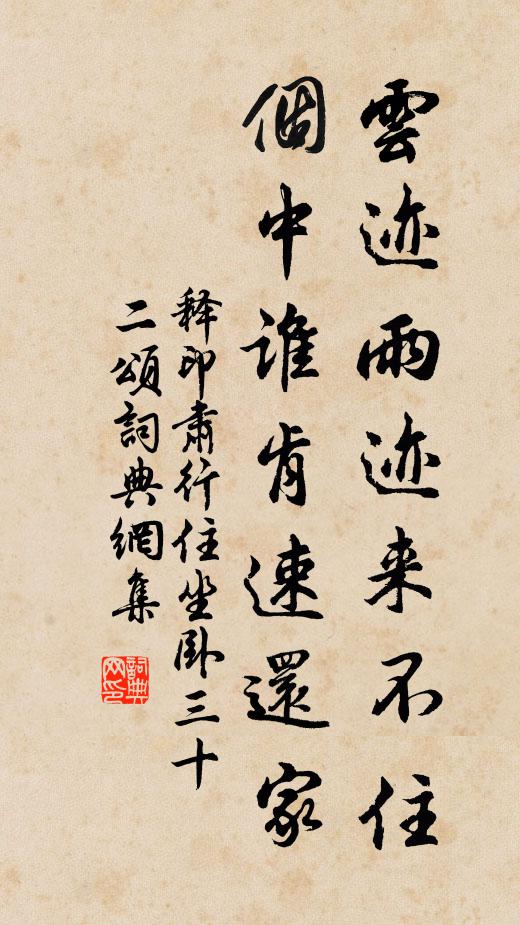 雲迹雨迹来不住
個中誰肯速還家
释印肅行住坐卧三十
二頌詞典網集
詞典网印